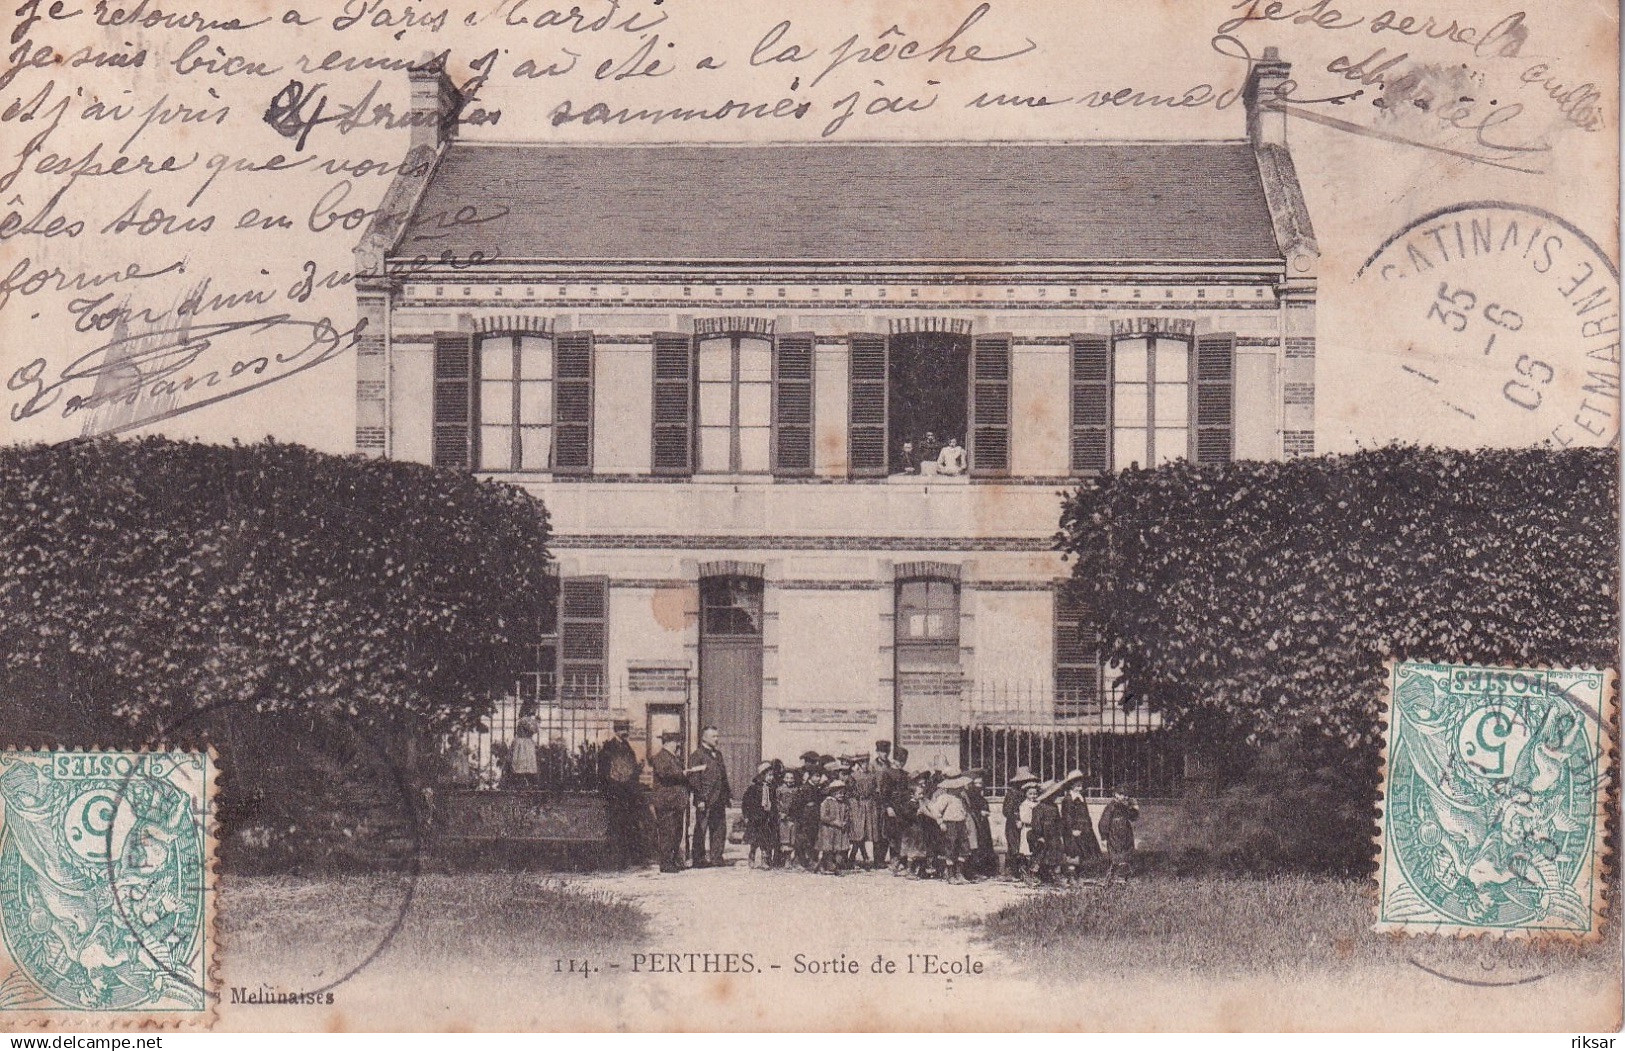 je retourne a Paris Mardi,
je suis bien remis j'ai été a la pêche
et j'ai pris 24 truites saumonés j'ai une veine de
j'espère que vous
êtes tous en bonne
forme.
Ton ami
Je te serre la
GATINAIS SEINE ETMARNE
1 35
1 -6
05
POSTES
5c
POSTES
5c
114. - PERTHES. - Sortie de l'Ecole
Melunaises
delcampe.net
riksar